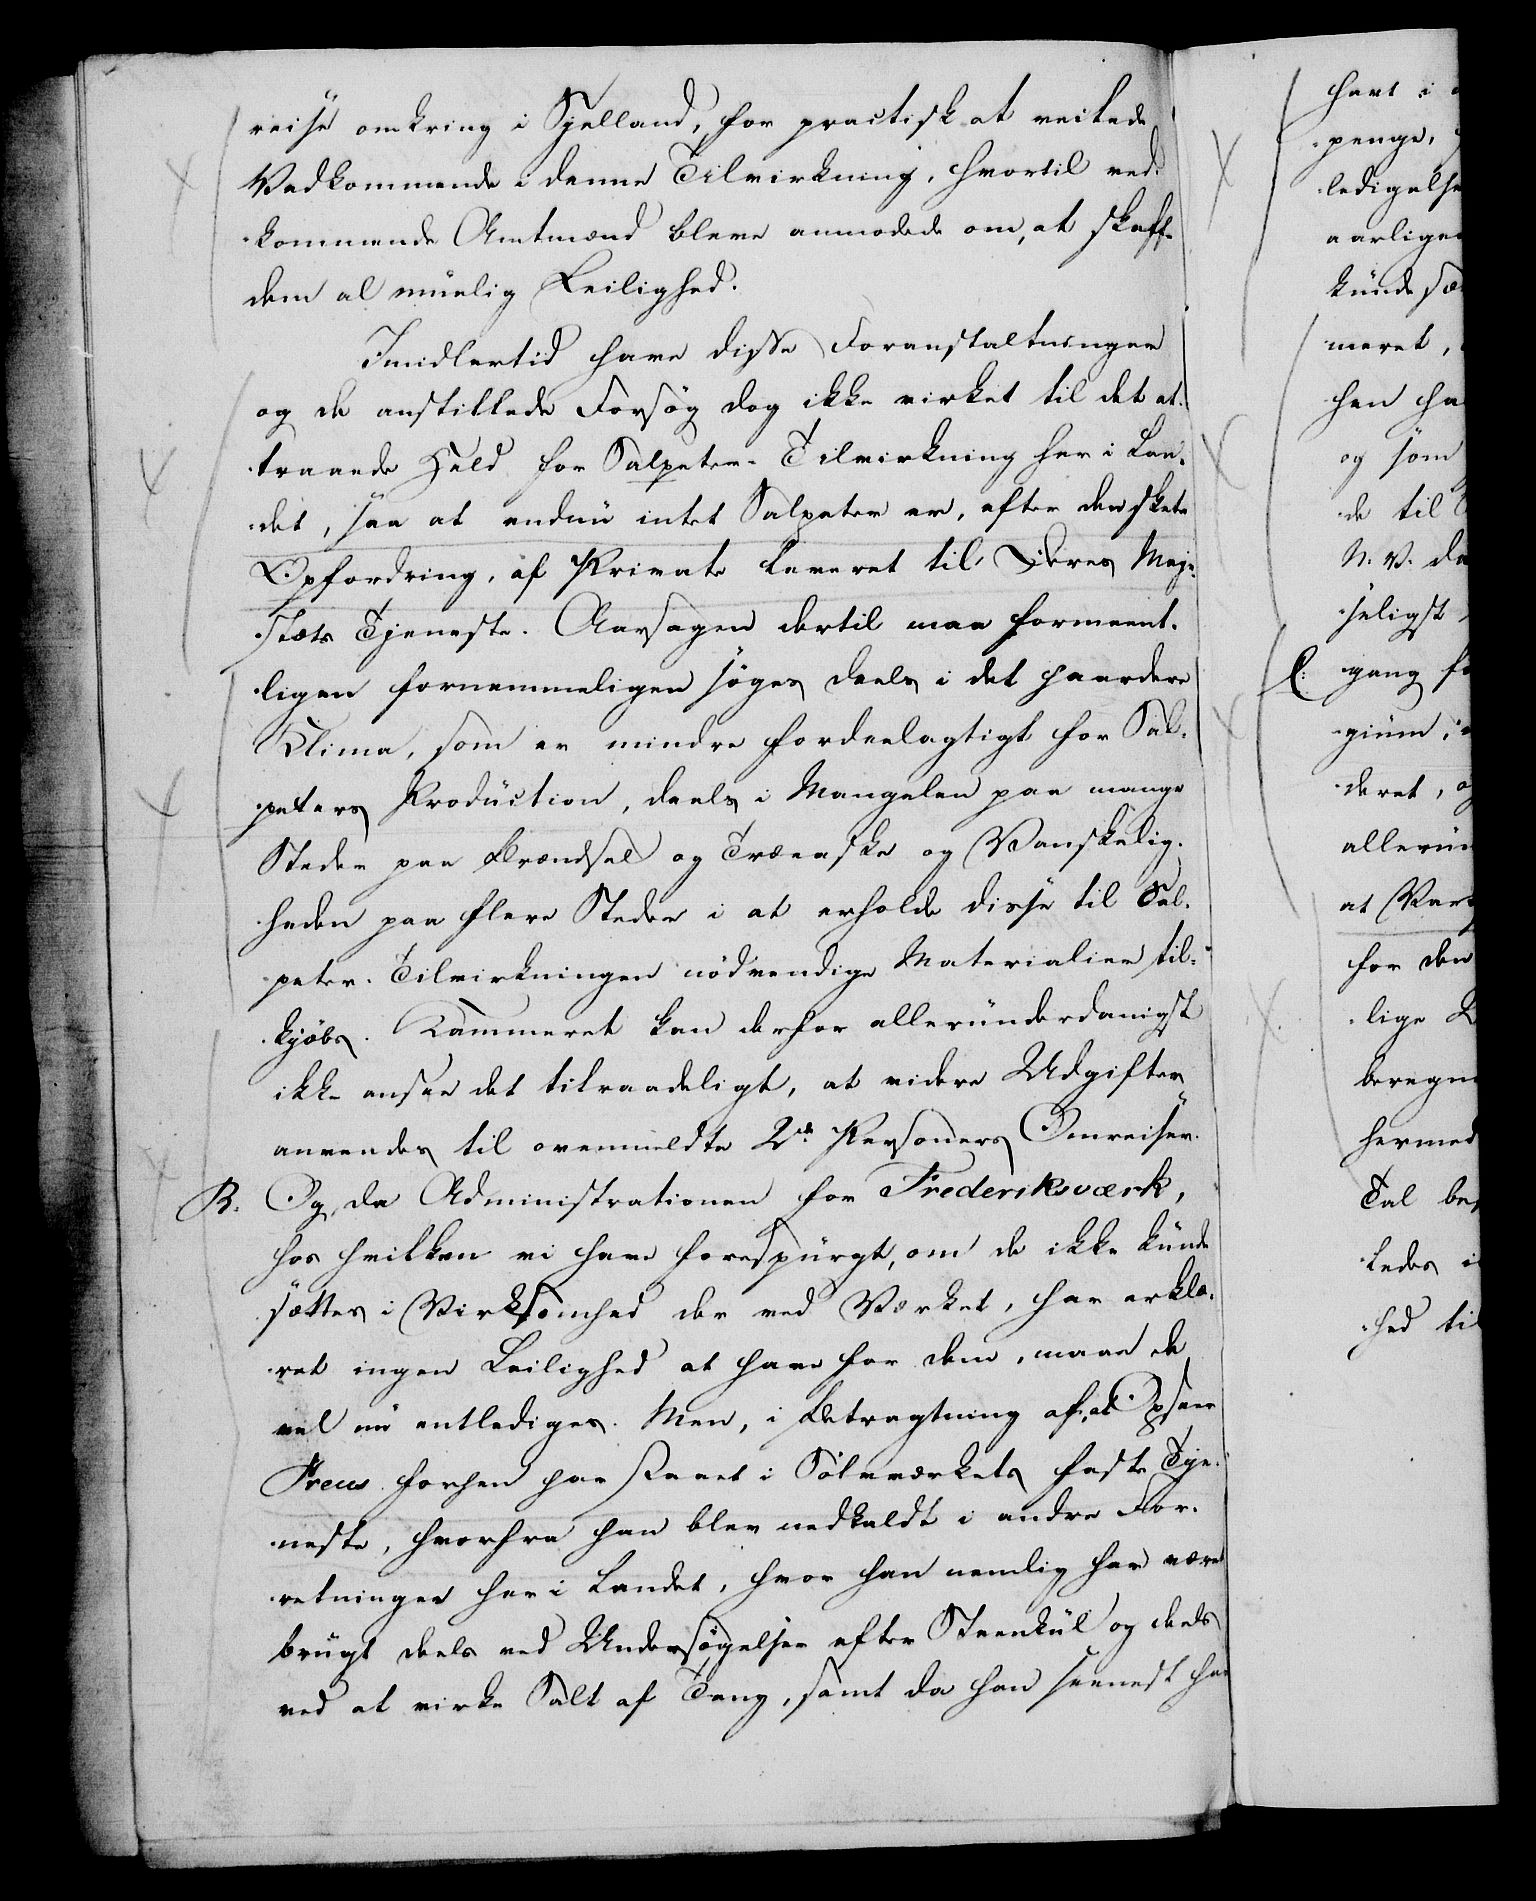 reise omkring i Sjelland, for practisk at veilede
Vedkommende i denne Tilvirkning, hvortil ved-
kommende Amtmænd bleve anmodede om, at skaffe
dem al muelig Leilighed.
Imidlertid have disse Foranstaltninger
og de anstillede Forsøg dog ikke virket til det at-
traaede Held for Salpeter-Tilvirkning her i Lan-
det, saa at endnu intet Salpeter er, efter den skete
Opfordring, af Private leveret til Deres Maje-
stæts Tjeneste. Aarsagen dertil maa formeent-
ligen fornemmeligen søges deels i det haardere
Clima, som er mindre fordeelagtigt for Sal-
peters Production, deels i Mangelen paa mange
Steder paa Brændsel og Træeaske og Vanskelig-
heden paa flere Steder i at erholde disse til Sal-
peter-Tilvirkningen nødvendige Materialier til-
kjøbs. Kammeret kan derfor allerunderdanigst
ikke ansee det tilraadeligt, at videre Udgifter
anvendes til ovenmeldte 2de Personers Omreiser.
B. Og da Administrationen for Frederiksværk,
hos hvilken vi have forespurgt, om de ikke kunde
sættes i Virksomhed der ved Værket, har erklæ-
ret ingen Leilighed at have for dem, maae de
vel nu entlediges. Men, i Betragtning af, at Opseer
Preus forhen har staaet i Sölvværkets faste Tje-
neste, hvorfra han blev nedkaldt i andre For-
retninger her i Landet, hvor han nemlig har været
brugt deels ved Undersøgelser efter Steenkul og deels
ved at virke Salt af Tang, samt da han seenest har
havt i
penge,
ledigelse
aarligen
kunde
meret,
han
og som
de til
N. V.
seligst
C: gang
gium,
deret, og
allerun
at
for den
lige
beregne
hermed
Tal
ledes i
hed til